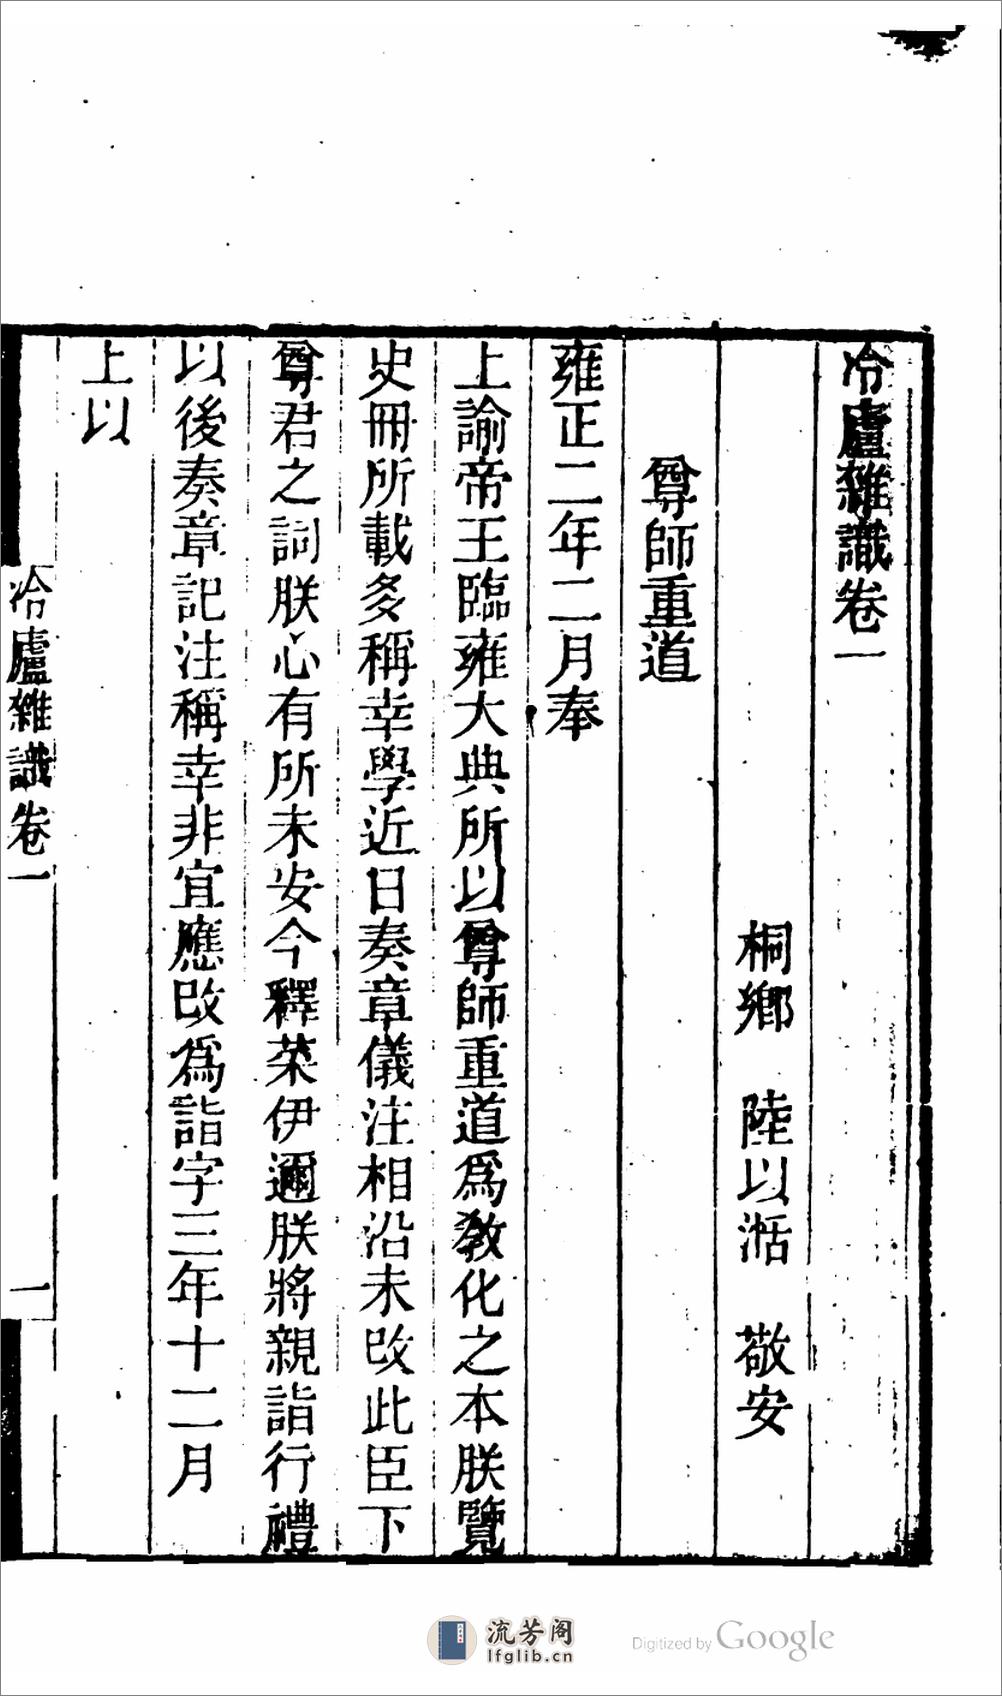 冷廬雜識卷一
桐鄉　陸以湉　敬安
尊師重道
雍正二年二月奉
上諭帝王臨雍大典所以尊師重道爲教化之本朕覽
史冊所載多稱幸學近日奏章儀注相沿未改此臣下
尊君之詞朕心有所未安今釋菜伊邇朕將親詣行禮
以後奏章記注稱幸非宜應改爲詣字三年十二月
上以
冷廬雜識卷一
一
流芳阁
lfglib.cn
Digitized by Google